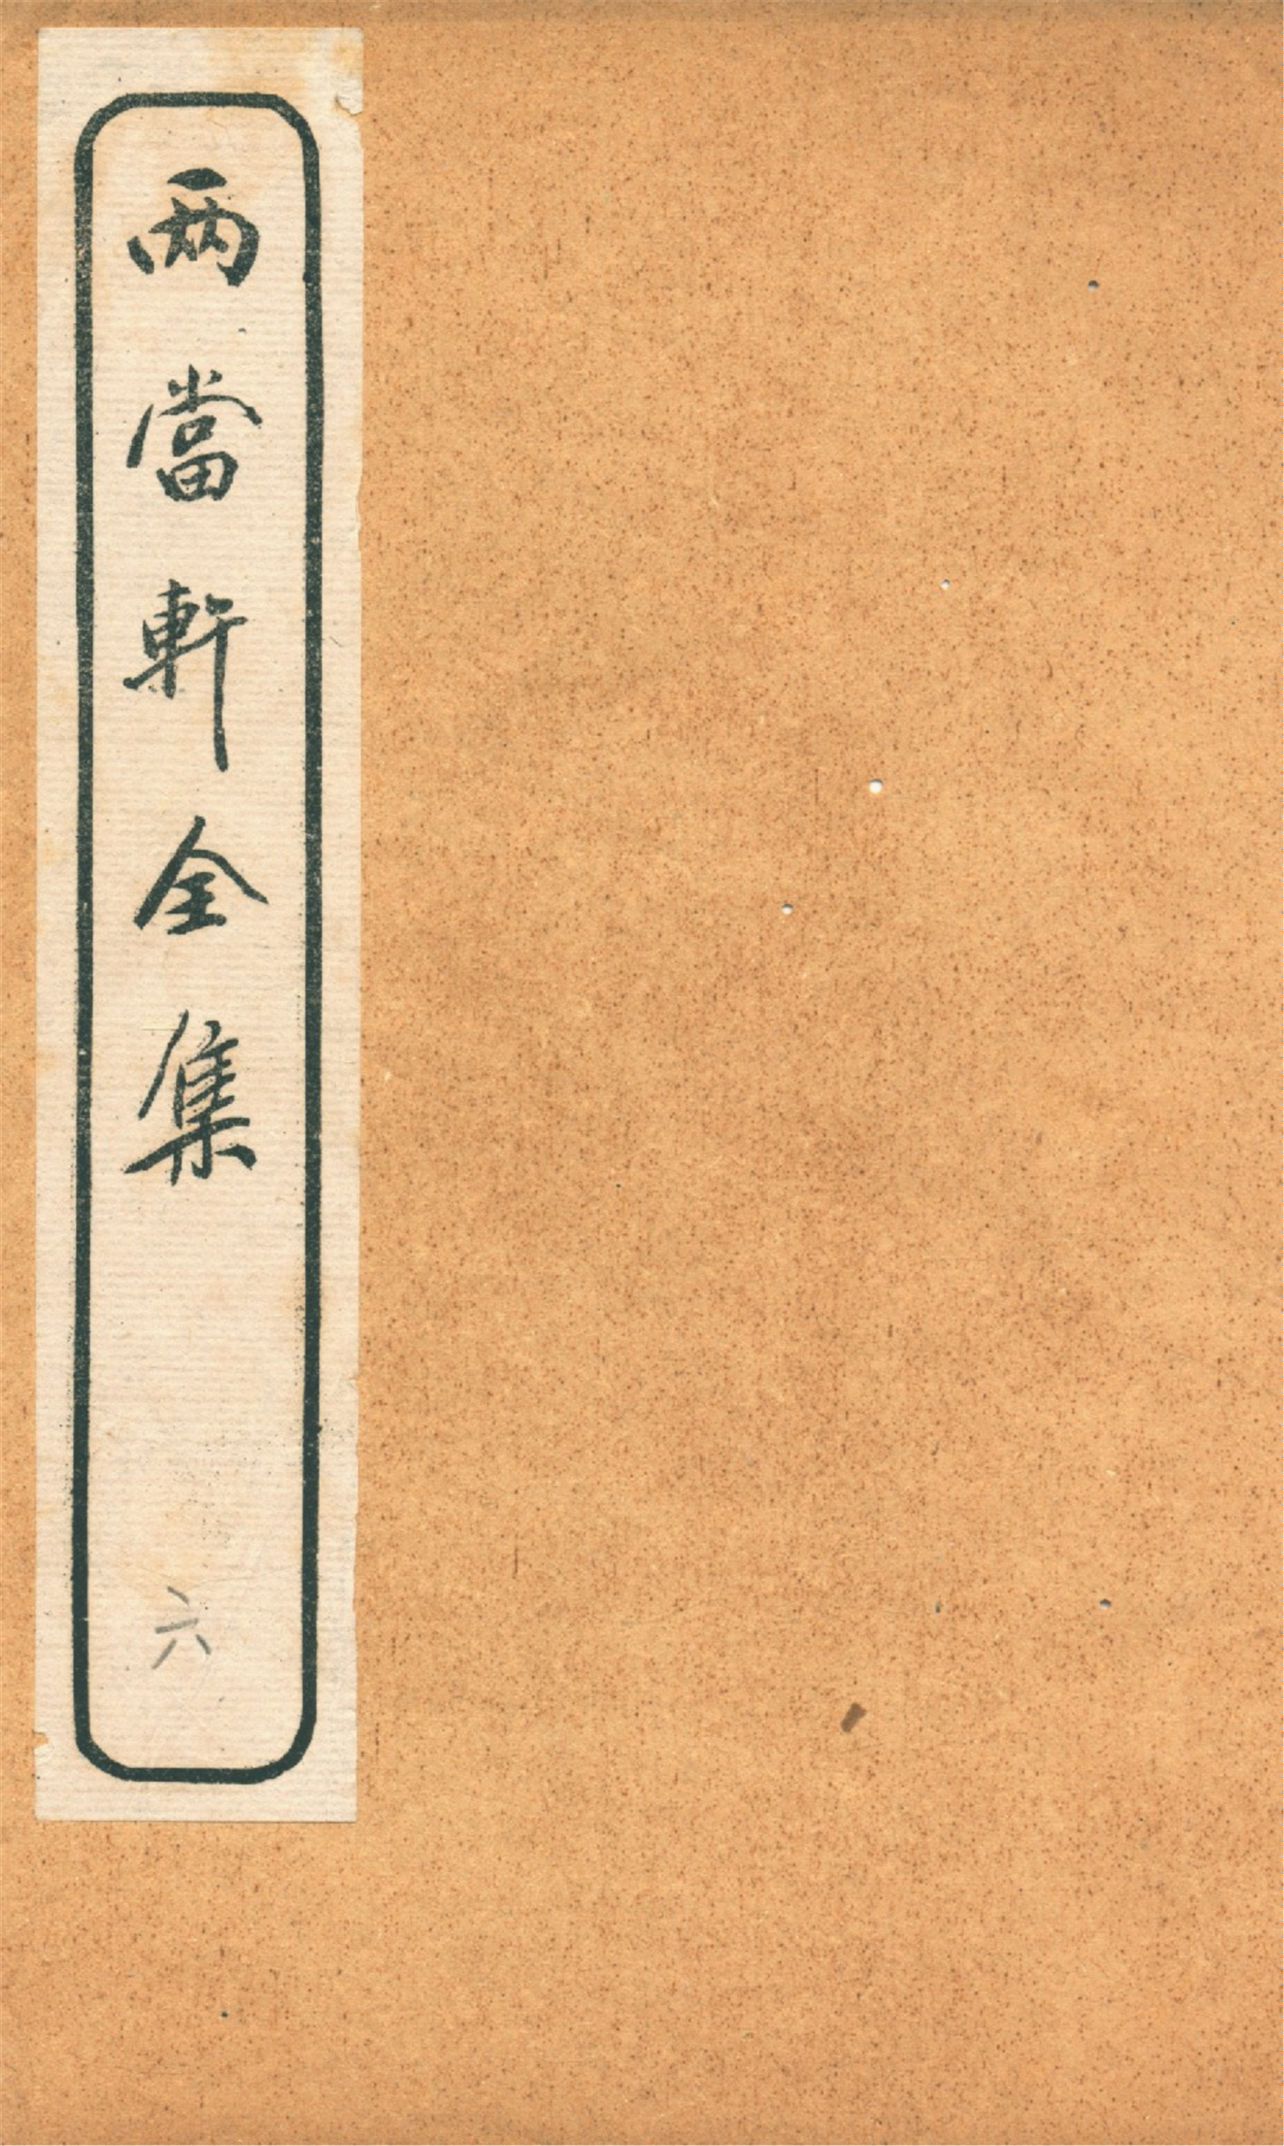 兩當軒全集
六